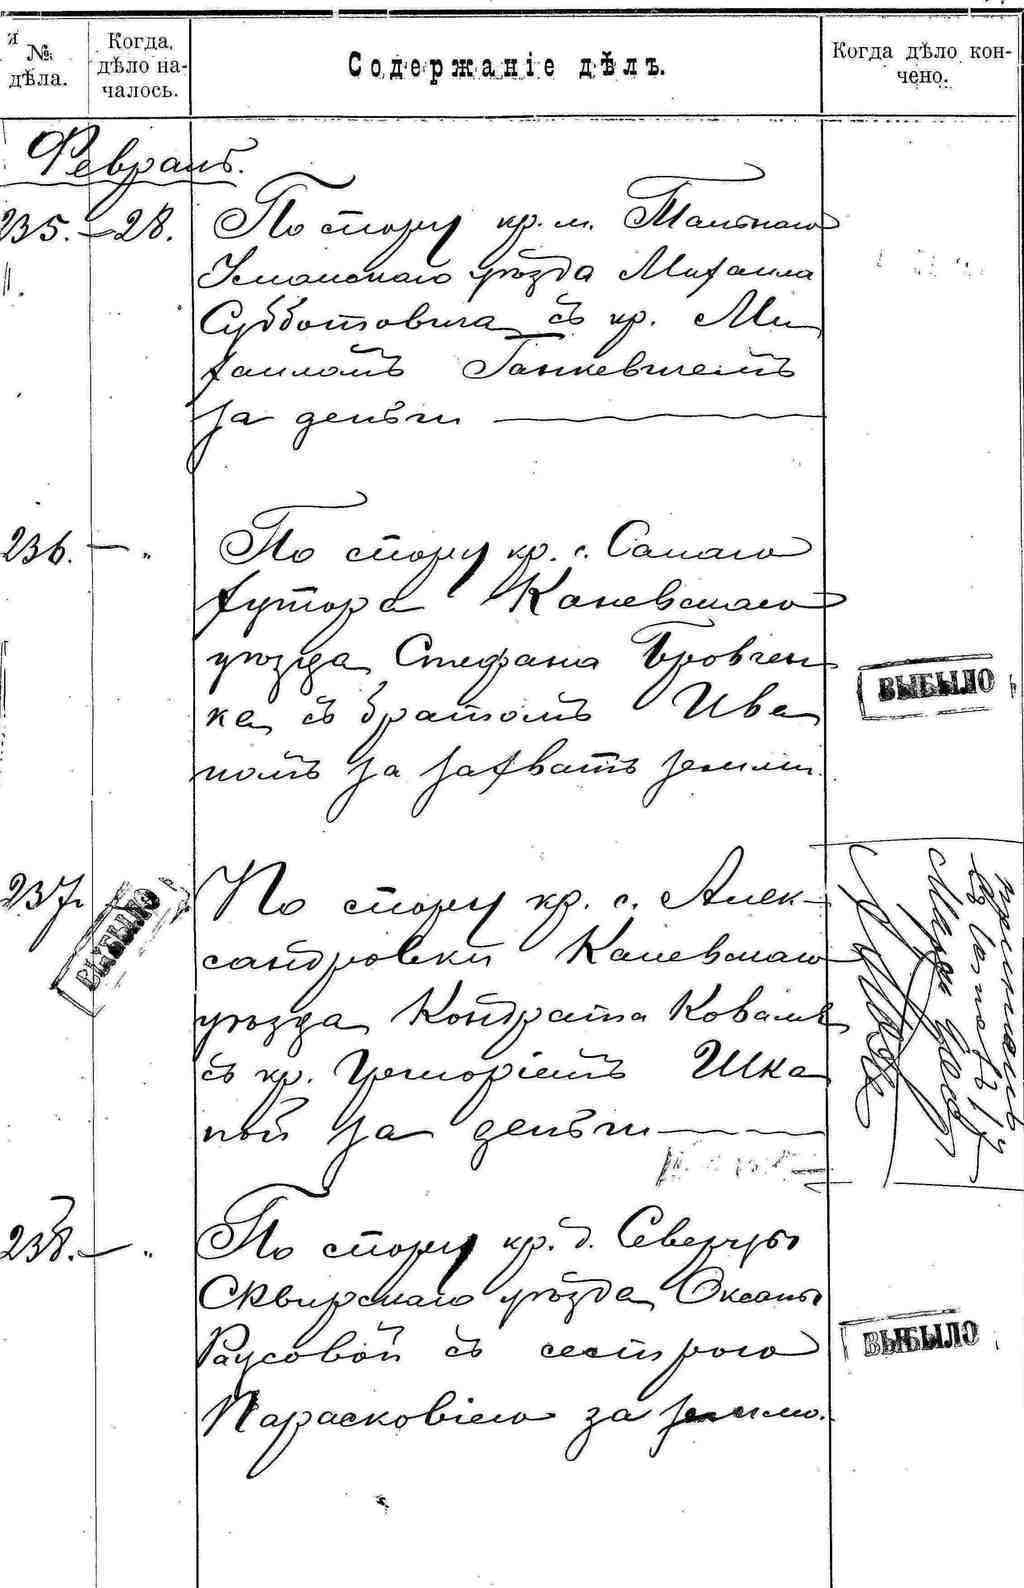 №
дѣла.
Когда,
дѣло на-
чалось.
Содержаніе дѣлъ.
Когда дѣло кон-
чено.
Февраль.
235. — 28.
По спору кр. м. Тальнаго
Уманскаго уѣзда Михаила
Субботовича съ кр. Ми
хаиломъ Ганкевичемъ
за деньги —
236. — „
По спору кр. с.
хутора Каневскаго
уѣзда Стефана Бровчен
ка съ братомъ Ива
номъ за захватъ земли.
ВЫБЫЛО
237
ВЫБЫЛО
По спору кр. с. Алек-
сандровки Каневскаго
уѣзда Кондрата Коваля
съ кр. Григоріемъ Шка
пой за деньги —
238. — „
По спору кр. д.
Сквирскаго уѣзда Оксаны
съ сестрою
Парасковіею за землю.
ВЫБЫЛО